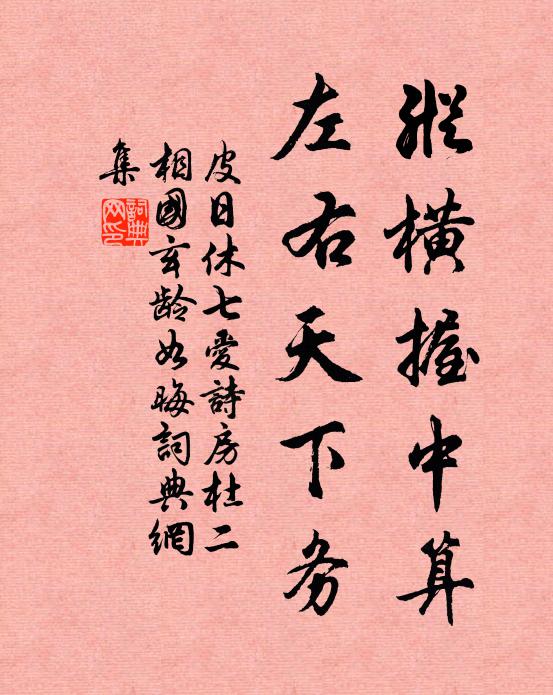 縱橫握中算
左右天下务
皮日休七愛詩房杜二
相國玄龄如晦詞典網
集
詞典网印